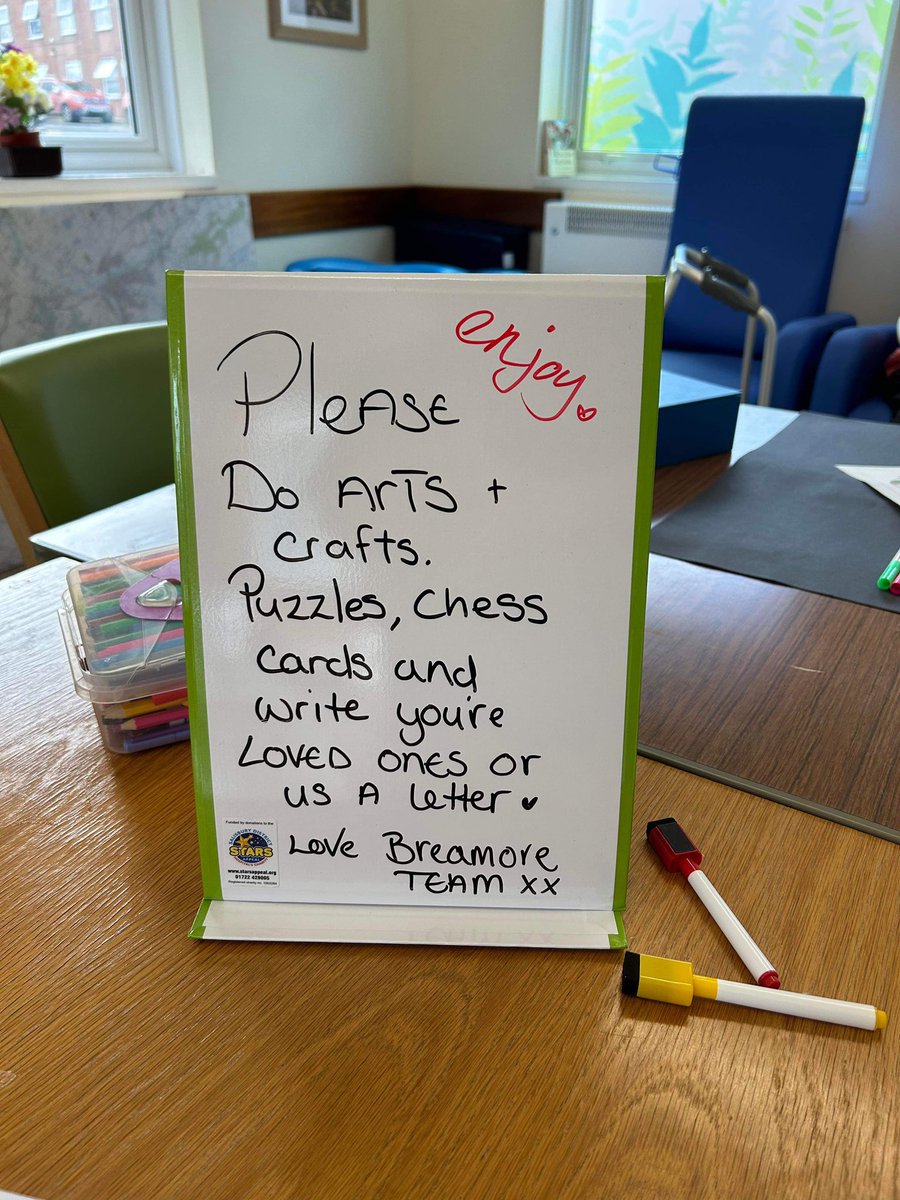 enjoy
Please
Do Arts +
crafts.
Puzzles, Chess
cards and
write you're
Loved ones or
us A letter
Love Breamore
Team xx
Funded by donations to the
SALISBURY DISTRICT
STARS
APPEAL
www.starsappeal.org
01722 429005